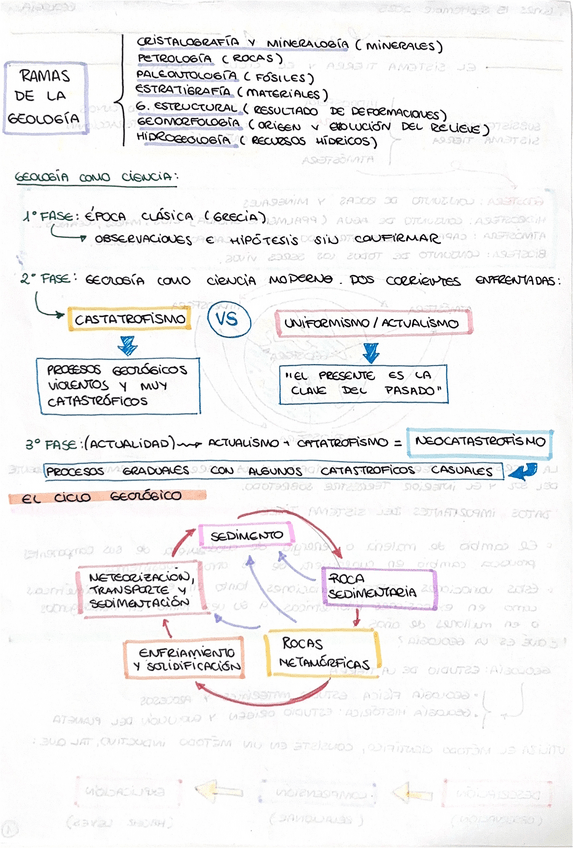 RAMAS
DE LA
GEOLOGÍA
CRISTALOGRAFÍA Y MINERALOGÍA (MINERALES)
PETROLOGÍA (ROCAS)
PALEONTOLOGÍA (FÓSILES)
ESTRATIGRAFÍA (MATERIALES)
G. ESTRUCTURAL (RESULTADO DE DEFORMACIONES)
GEOMORFOLOGÍA (ORIGEN Y EVOLUCIÓN DEL RELIEVE)
HIDROGEOLOGÍA (RECURSOS HÍDRICOS)
GEOLOGÍA COMO CIENCIA:
1º FASE: ÉPOCA CLÁSICA (GRECIA)
OBSERVACIONES E HIPÓTESIS SIN CONFIRMAR
2º FASE: GEOLOGÍA COMO CIENCIA MODERNO. DOS CORRIENTES ENFRENTADAS:
CASTATROFISMO VS UNIFORMISMO/ACTUALISMO
PROCESOS GEOLÓGICOS
VIOLENTOS Y MUY
CATASTRÓFICOS
"EL PRESENTE ES LA
CLAVE DEL PASADO"
3º FASE: (ACTUALIDAD) ACTUALISMO + CATATROFISMO = NEOCATASTROFISMO
PROCESOS GRADUALES CON ALGUNOS CATASTROFICOS CASUALES
EL CICLO GEOLÓGICO
SEDIMENTO
ROCA
SEDIMENTARIA
ROCAS
METAMÓRFICAS
ENFRIAMIENTO
Y SOLIDIFICACIÓN
METEORIZACIÓN,
TRANSPORTE Y
SEDIMENTACIÓN